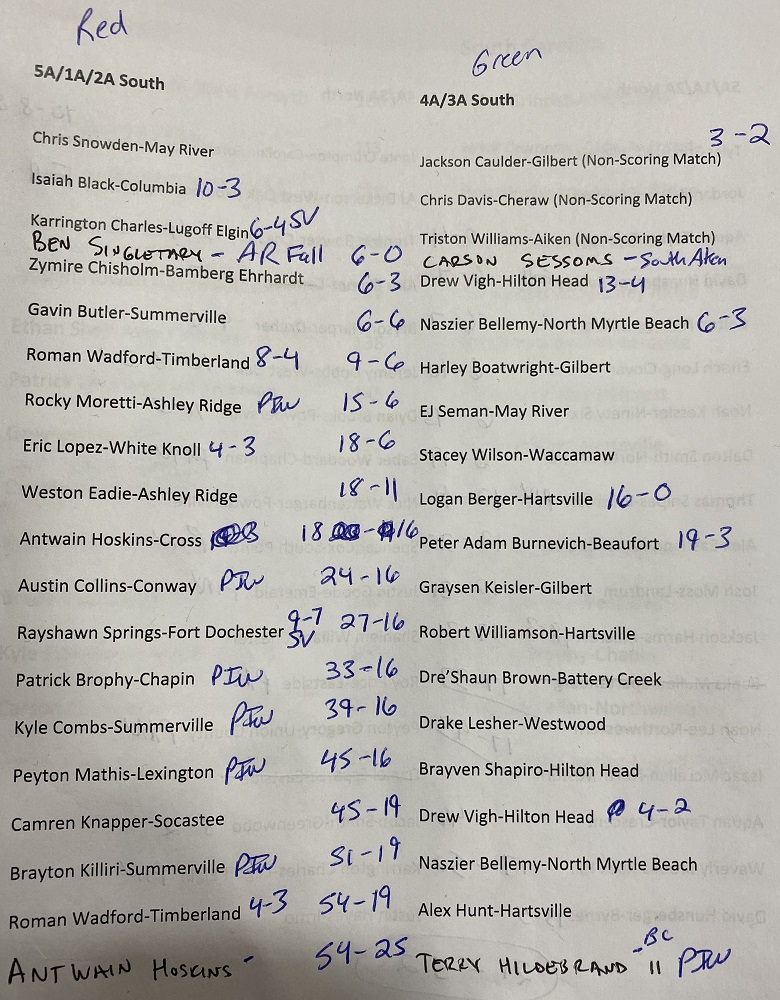 Red
Green
5A/1A/2A South
4A/3A South
3-2
Chris Snowden-May River
Jackson Caulder-Gilbert (Non-Scoring Match)
Isaiah Black-Columbia 10-3
Chris Davis-Cheraw (Non-Scoring Match)
Karrington Charles-Lugoff Elgin 6-4 SV
Triston Williams-Aiken (Non-Scoring Match)
BEN SINGLETARY - AR Fall 6-0
CARSON SESSOMS - South Aken
Zymire Chisholm-Bamberg Ehrhardt 6-3
Drew Vigh-Hilton Head 13-4
Gavin Butler-Summerville 6-6
Naszier Bellemy-North Myrtle Beach 6-3
Roman Wadford-Timberland 8-4 9-6
Harley Boatwright-Gilbert
Rocky Moretti-Ashley Ridge PIN 15-6
EJ Seman-May River
Eric Lopez-White Knoll 4-3 18-6
Stacey Wilson-Waccamaw
Weston Eadie-Ashley Ridge 18-11
Logan Berger-Hartsville 16-0
Antwain Hoskins-Cross 18 - 16
Peter Adam Burnevich-Beaufort 19-3
Austin Collins-Conway PIN 24-16
Graysen Keisler-Gilbert
Rayshawn Springs-Fort Dochester 9-7 SV 27-16
Robert Williamson-Hartsville
Patrick Brophy-Chapin PIN 33-16
Dre'Shaun Brown-Battery Creek
Kyle Combs-Summerville PIN 39-16
Drake Lesher-Westwood
Peyton Mathis-Lexington PIN 45-16
Brayven Shapiro-Hilton Head
Camren Knapper-Socastee 45-19
Drew Vigh-Hilton Head 4-2
Brayton Killiri-Summerville PIN 51-19
Naszier Bellemy-North Myrtle Beach
Roman Wadford-Timberland 4-3 54-19
Alex Hunt-Hartsville
ANTWAIN HOSKINS - 54-25
TERRY HILDEBRAND - BC II PIN